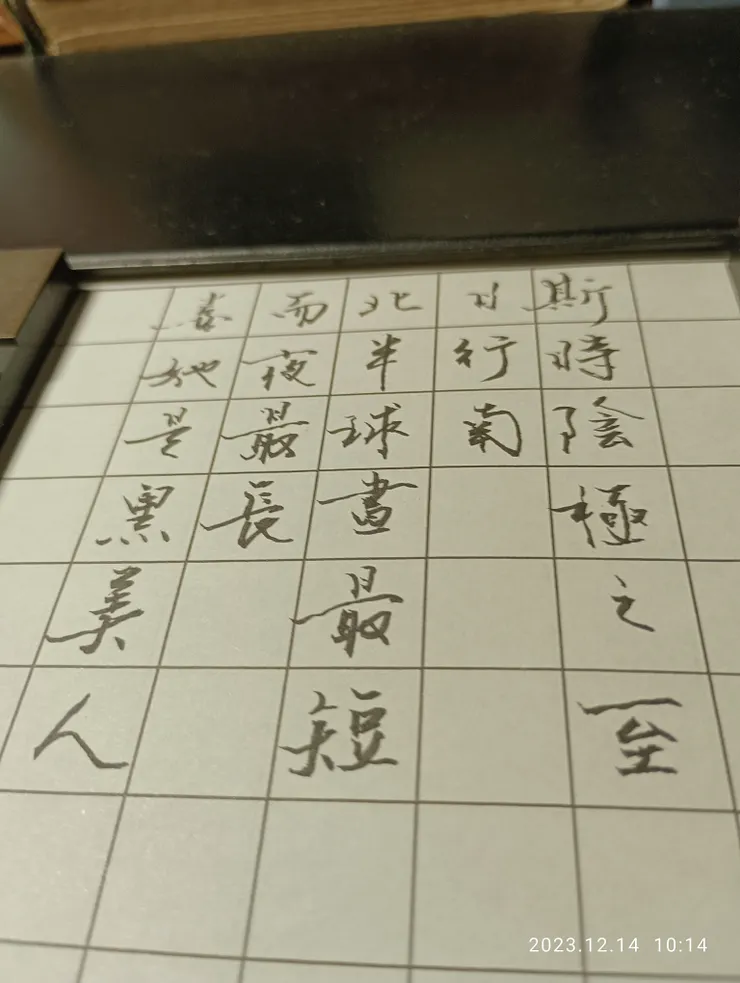 斯時陰極之至
日行南
北半球晝最短
而夜最長
她是黑美人
2023.12.14 10:14